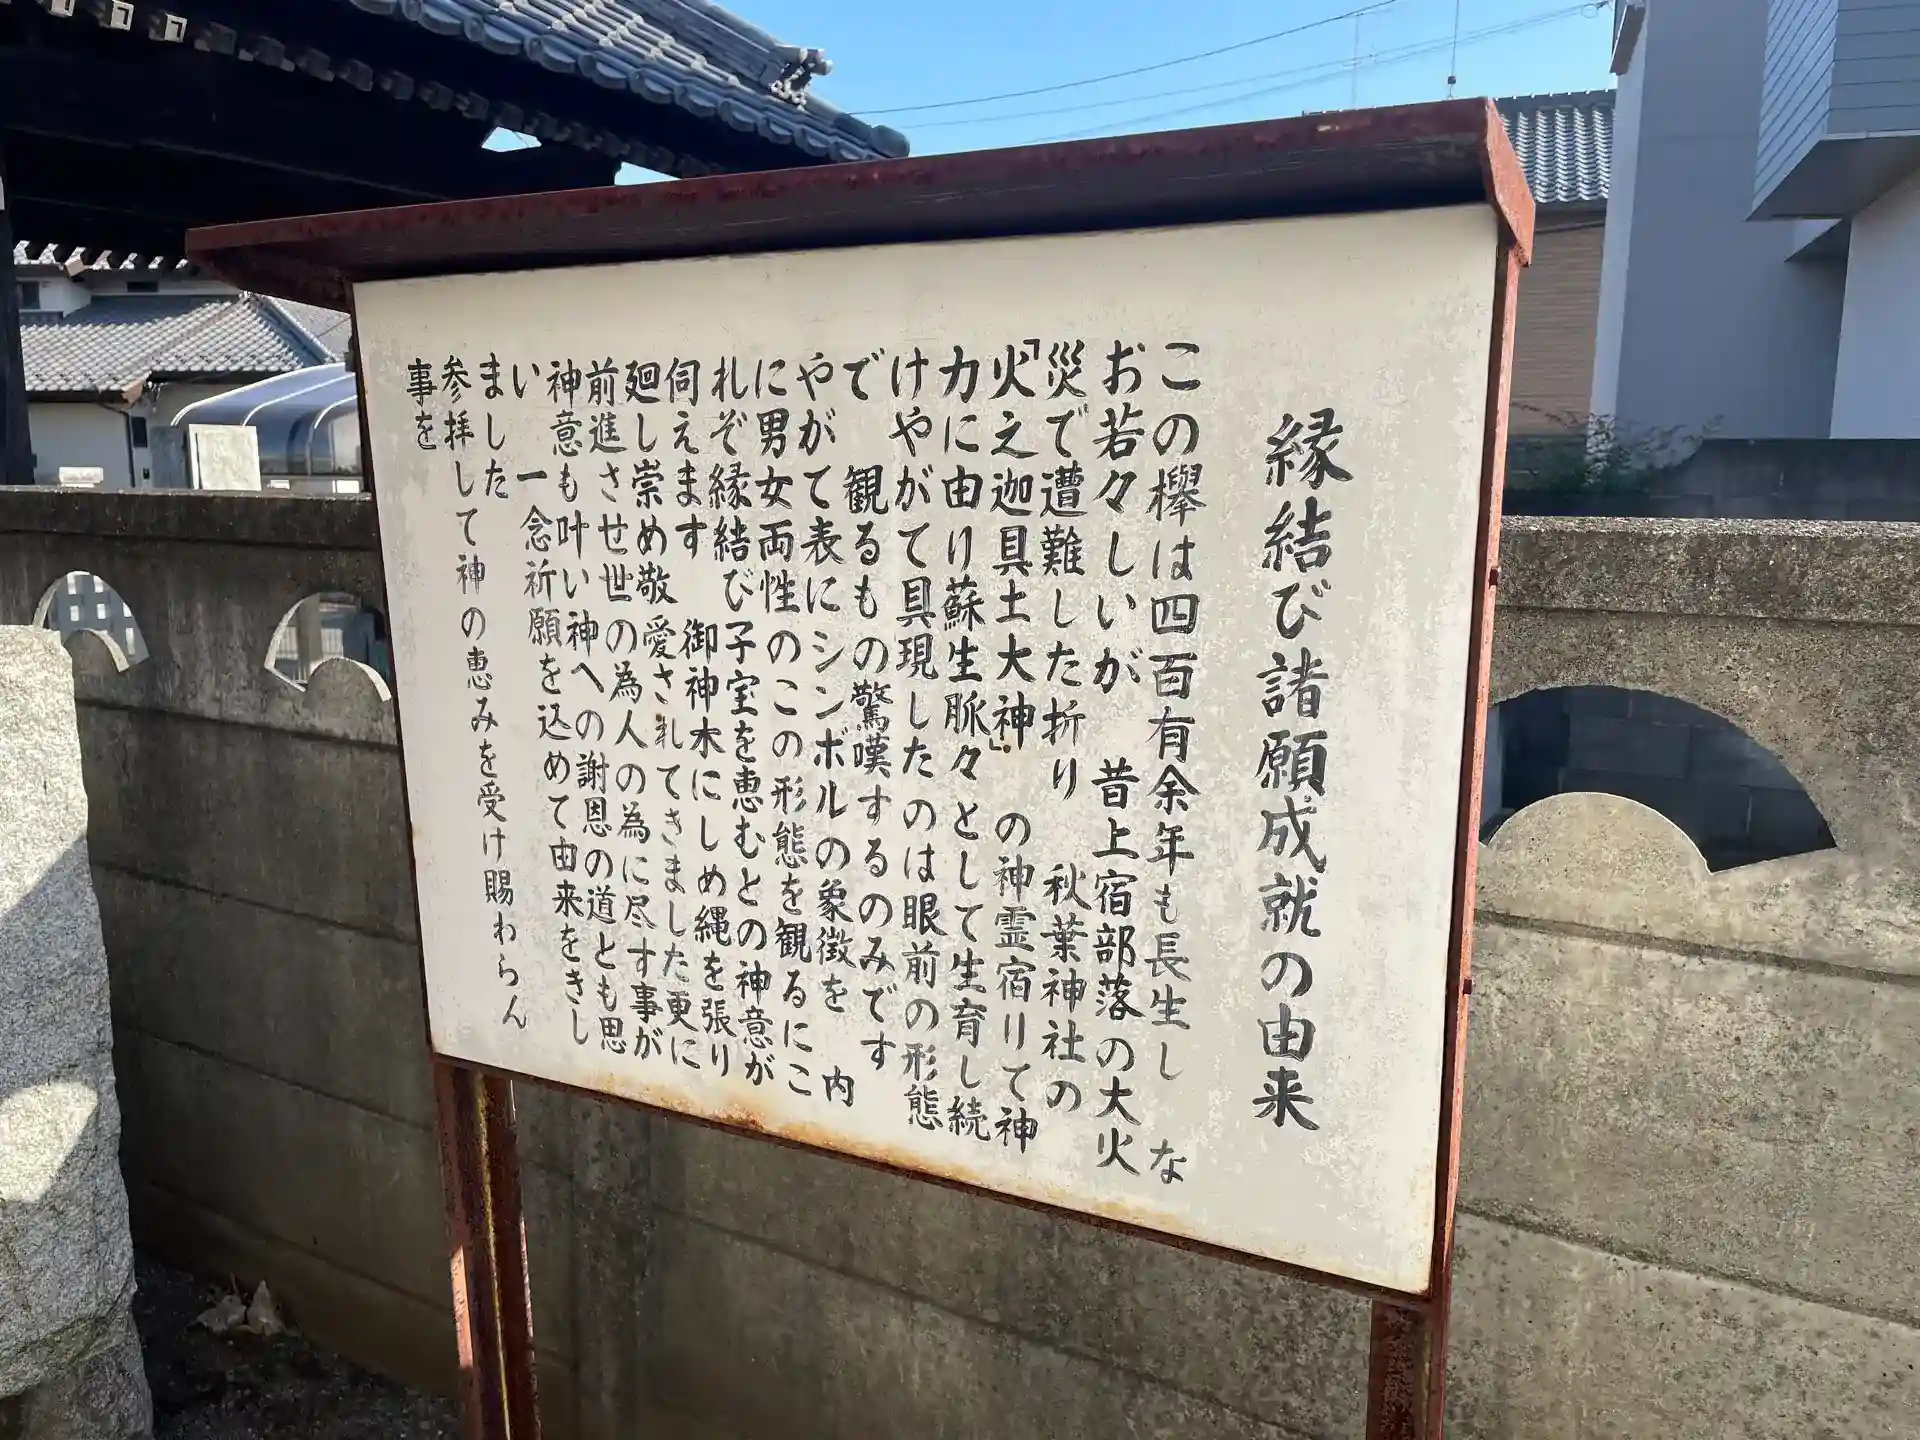 縁結び諸願成就の由来
この欅は四百有余年も長生し な
お若々しいが 昔上宿部落の大火
災で遭難した折り 秋葉神社の
「火之迦具土大神」 の神霊宿りて神
力に由り蘇生脈々として生育し続
けやがて具現したのは眼前の形態
で 観るもの驚嘆するのみです
やがて表にシンボルの象徴を 内
に男女両性のこの形態を観るにこ
れぞ縁結び子宝を恵むとの神意が
伺えます 御神木にしめ縄を張り
廻し崇め敬愛されてきました更に
前進させ世の為人の為に尽す事が
神意も叶い神への謝恩の道とも思
い 一念祈願を込めて由来をきし
ました
参拝して神の恵みを受け賜わらん
事を